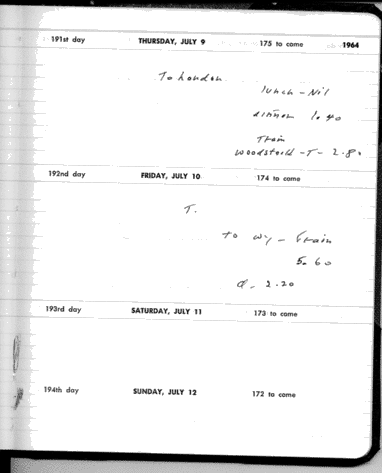 191st day THURSDAY, JULY 9 175 to come 1964
To London
lunch - Nil
dinner 1.40
Train
Woodstock - T - 2.80
192nd day FRIDAY, JULY 10 174 to come
T.
to Wy - Train
5.60
d. 2.20
193rd day SATURDAY, JULY 11 173 to come
194th day SUNDAY, JULY 12 172 to come